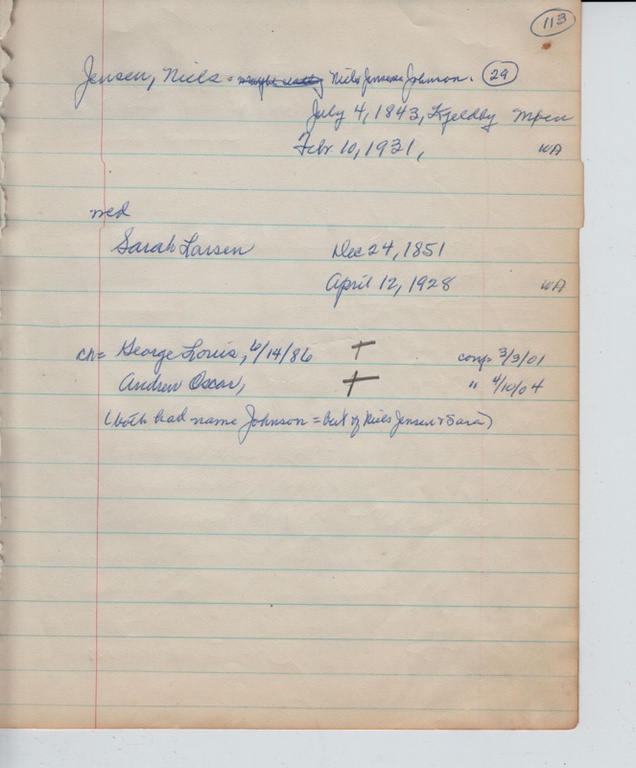 113
Jensen, Niels = Niels Jensen Johnson. 29
July 4, 1843, Kjeldby Møen
Febr 10, 1931, WA
med
Sarah Larsen Dec 24, 1851
April 12, 1928 WA
ch= George Louis, 6/14/86 + conf 3/3/01
Andrew Oscar, + " 4/10/04
(both had name Johnson = but of Niels Jensen & Sara)